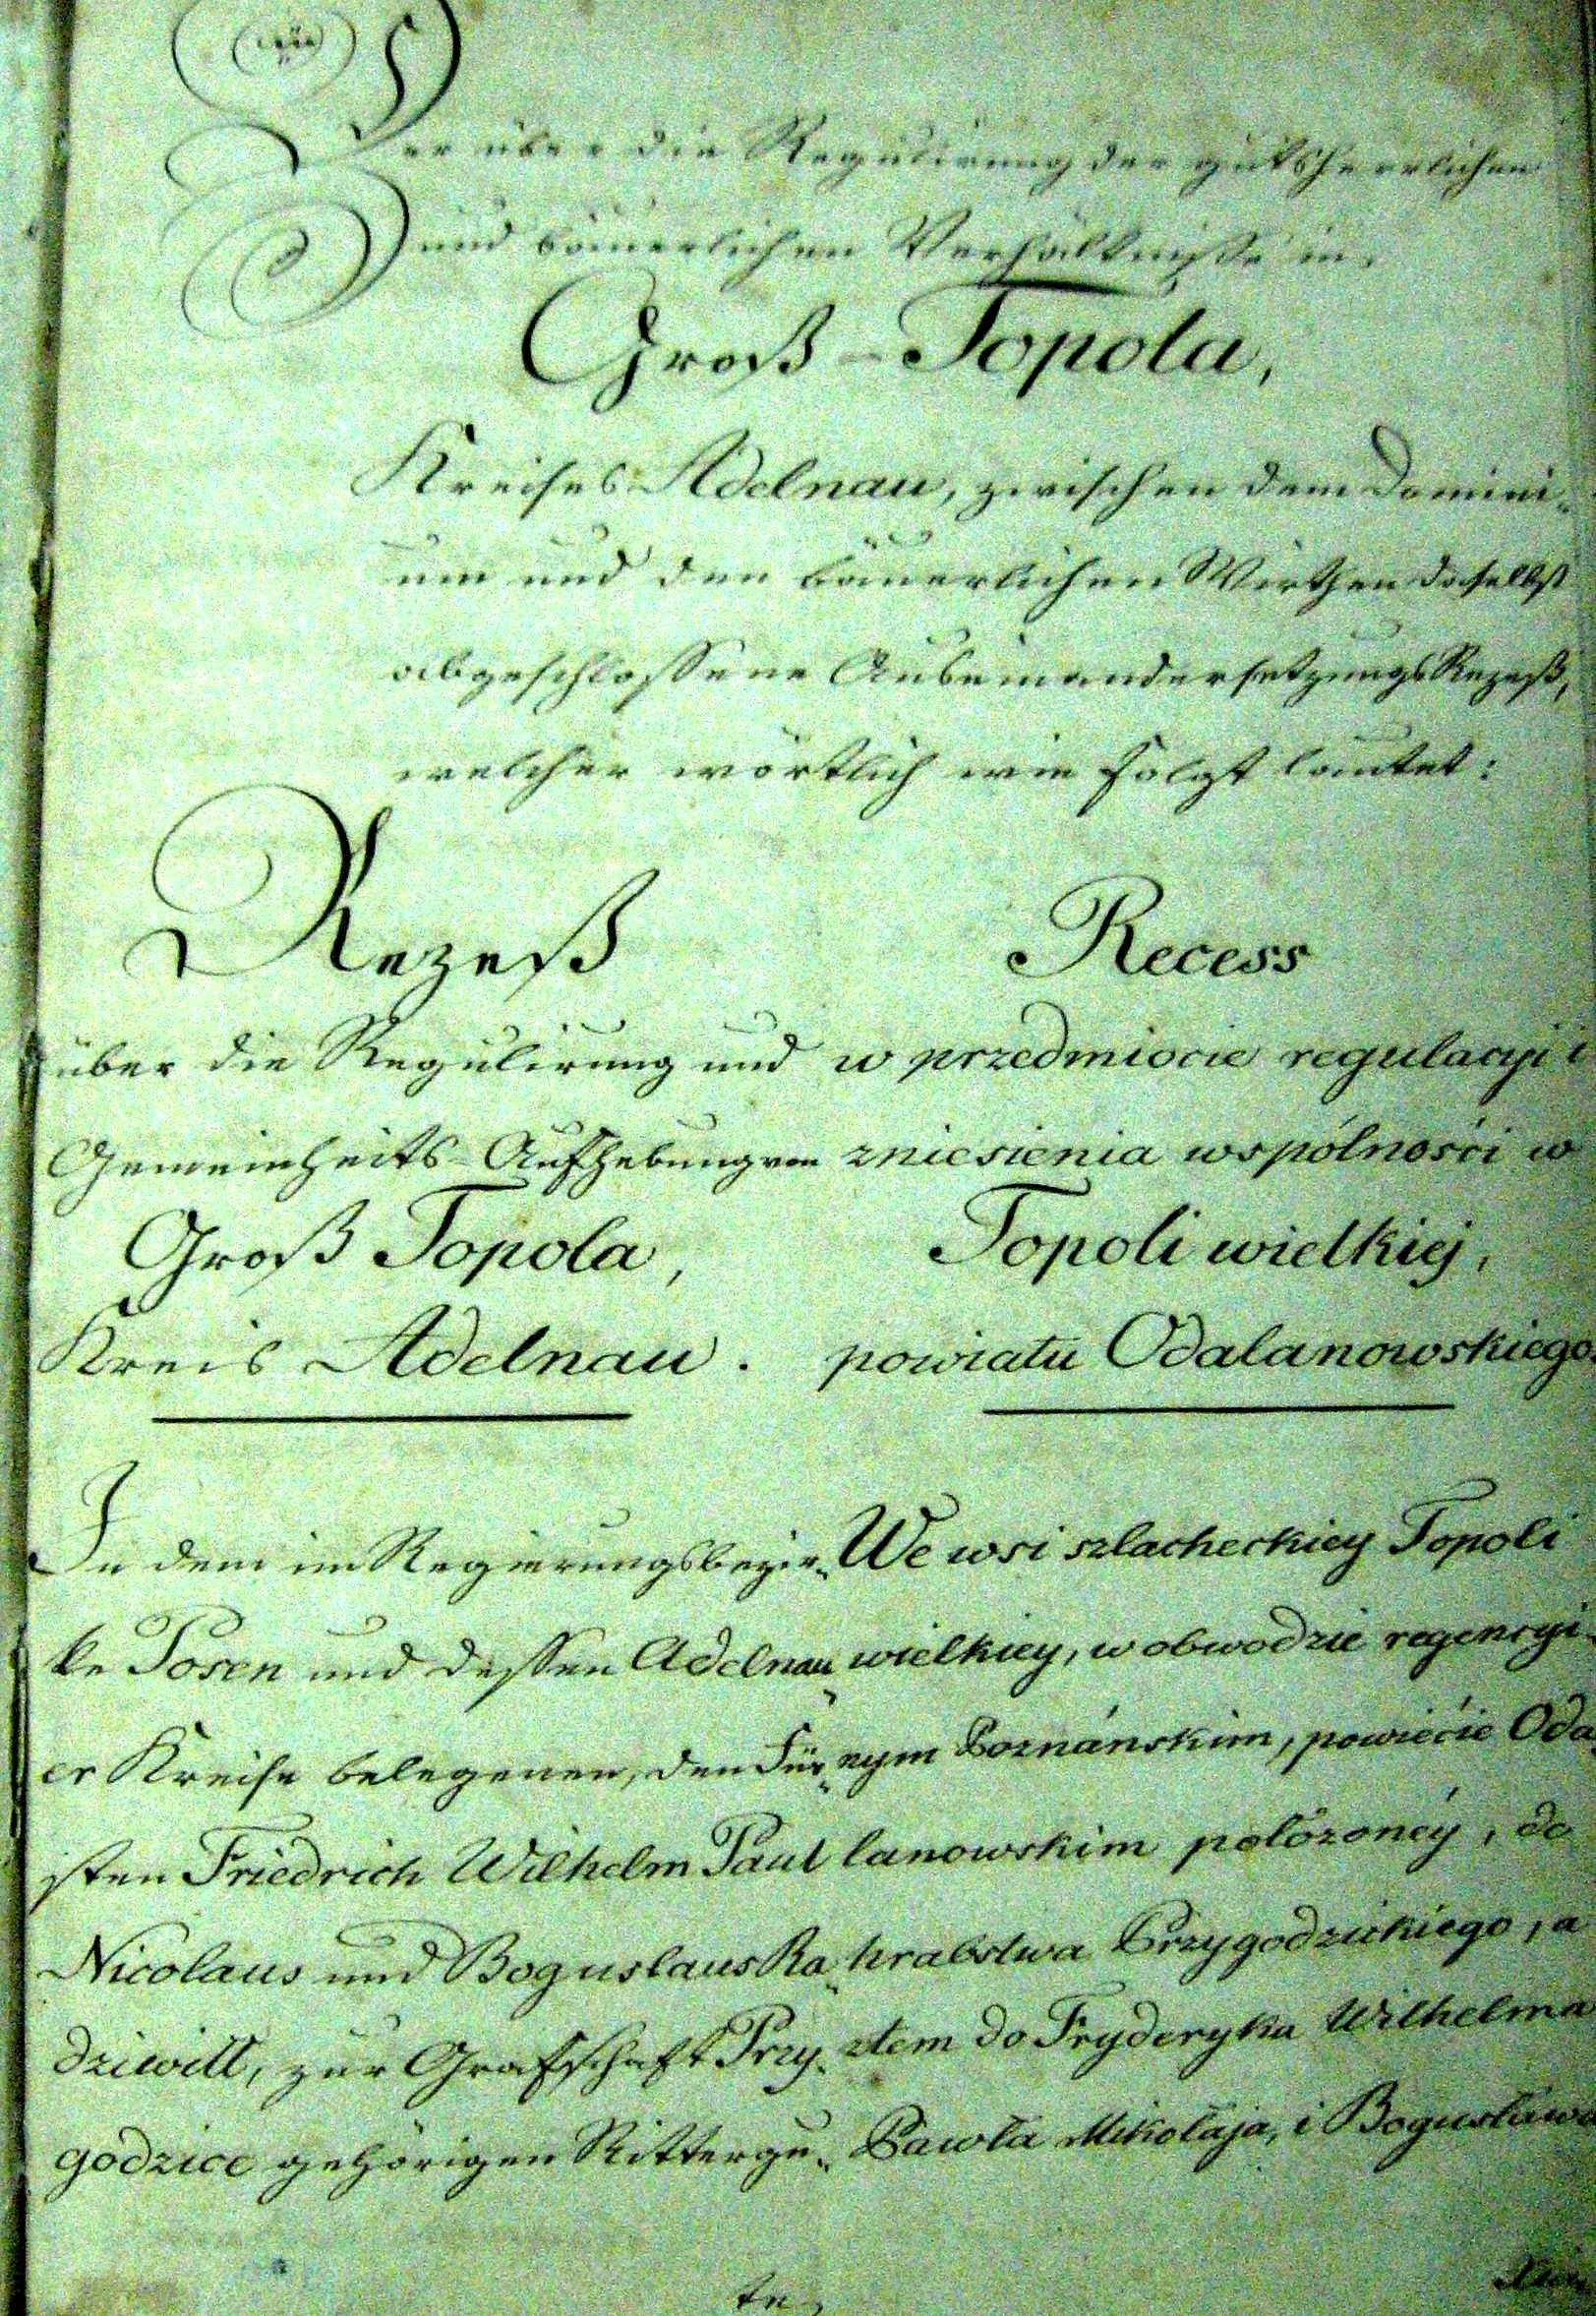 Der über die Regulirung der gutsherrlichen
und bäuerlichen Verhältniße in
Groß-Topola,
Kreises Adelnau, zwischen dem Domini-
um und den bäuerlichen Wirthen daselbst
abgeschlossene Auseinandersetzungs Rezeß,
welcher wörtlich wie folgt lautet:
Rezeß
über die Regulirung und
Gemeinheits-Aufhebung von
Groß Topola,
Kreis Adelnau.
In dem im Regierungsbezir-
ke Posen und dessen Adelnau
er Kreise belegenen, den Für-
sten Friedrich Wilhelm Paul
Nicolaus und Boguslaus Ra-
dziwill, zur Grafschaft Przy-
godzice gehörigen Rittergu-
te,
Recess
w przedmiocie regulacyi i
zniesienia wspólności w
Topoli wielkiéj,
powiatu Odalanowskiego.
We wsi szlacheckiey Topoli
wielkiey, w obwodzie regencyi-
nym Poznańskim, powiecie Oda
lanowskim położonéy, do
hrabstwa Przygodzickiego, a
ztem do Fryderyka Wilhelma
Pawła Mikołaja, i Bogusława